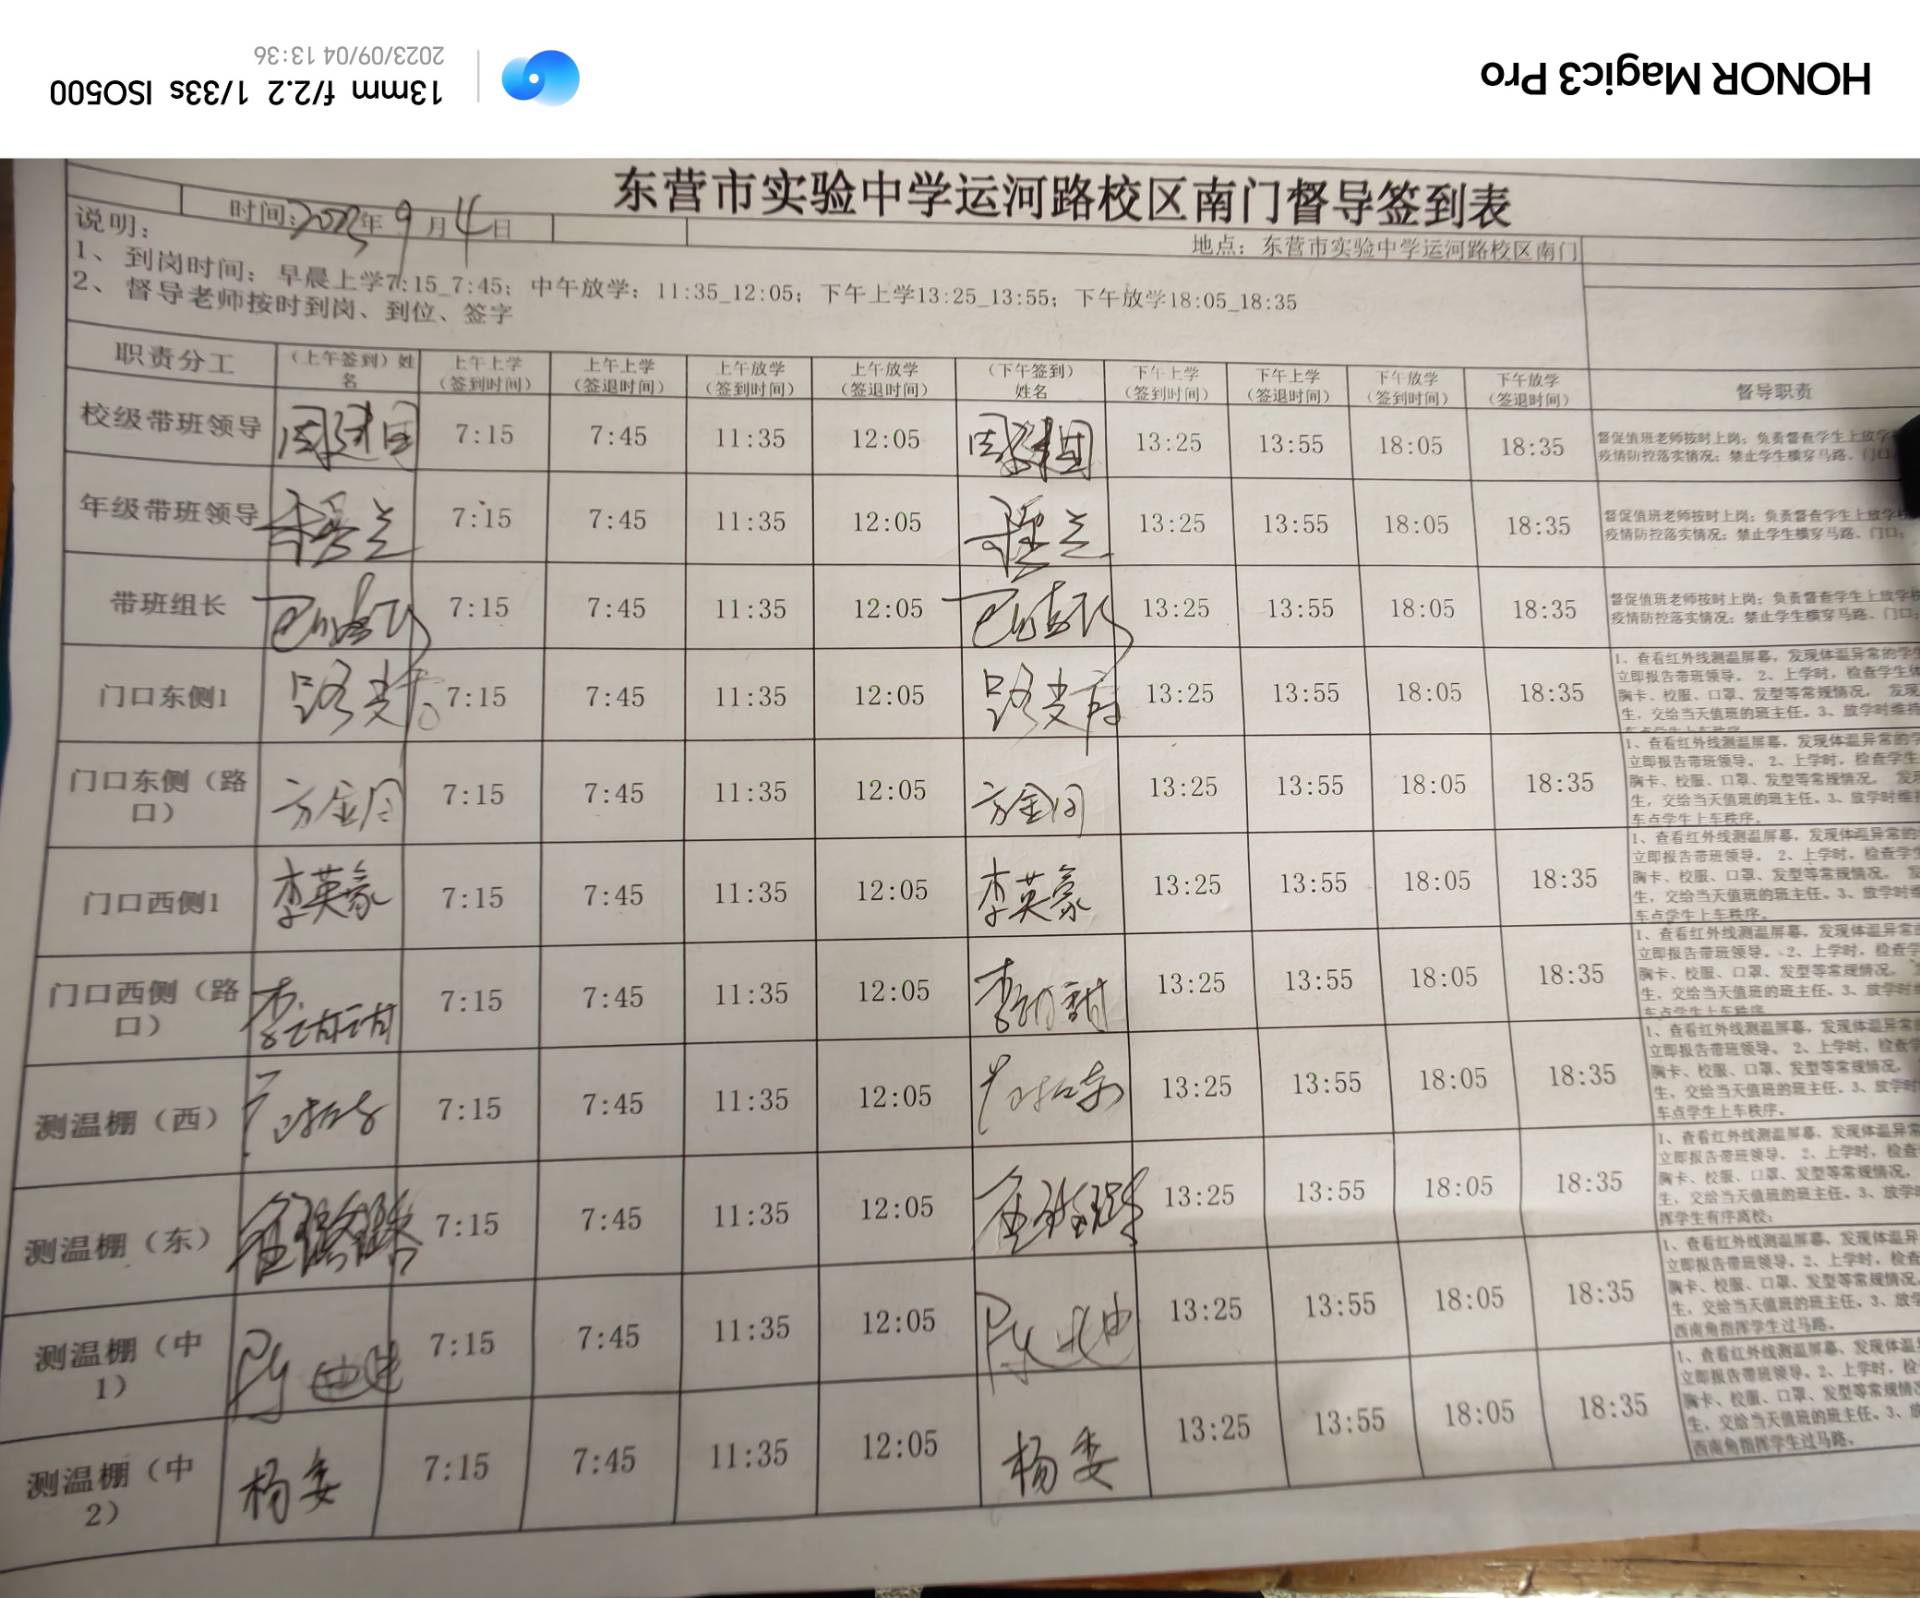 HONOR Magic3 Pro
13mm f/2.2 1/33s ISO500
2023/09/04 13:36
东营市实验中学运河路校区南门督导签到表
时间：2023年9月4日
地点：东营市实验中学运河路校区南门
说明：
1、到岗时间：早晨上学7:15_7:45；中午放学：11:35_12:05；下午上学13:25_13:55；下午放学18:05_18:35
2、督导老师按时到岗、到位、签字
职责分工 （上午签到）姓名 上午上学（签到时间） 上午上学（签退时间） 上午放学（签到时间） 上午放学（签退时间） （下午签到）姓名 下午上学（签到时间） 下午上学（签退时间） 下午放学（签到时间） 下午放学（签退时间） 督导职责
校级带班领导 7:15 7:45 11:35 12:05 13:25 13:55 18:05 18:35
督促值班老师按时上岗；负责督查学生上放学
疫情防控落实情况；禁止学生横穿马路、门口
年级带班领导 7:15 7:45 11:35 12:05 13:25 13:55 18:05 18:35
督促值班老师按时上岗；负责督查学生上放学
疫情防控落实情况；禁止学生横穿马路、门口；
带班组长 7:15 7:45 11:35 12:05 13:25 13:55 18:05 18:35
督促值班老师按时上岗；负责督查学生上放学
疫情防控落实情况；禁止学生横穿马路、门口；
门口东侧1 7:15 7:45 11:35 12:05 13:25 13:55 18:05 18:35
1、查看红外线测温屏幕，发现体温异常的学生
立即报告带班领导。2、上学时，检查学生
胸卡、校服、口罩、发型等常规情况，发现
生，交给当天值班的班主任。3、放学时维持
门口东侧（路口） 方金同 7:15 7:45 11:35 12:05 方金同 13:25 13:55 18:05 18:35
1、查看红外线测温屏幕，发现体温异常的学
立即报告带班领导。2、上学时，检查学生
胸卡、校服、口罩、发型等常规情况，发现
生，交给当天值班的班主任。3、放学时维持
车点学生上车秩序。
门口西侧1 李英豪 7:15 7:45 11:35 12:05 李英豪 13:25 13:55 18:05 18:35
1、查看红外线测温屏幕，发现体温异常的
立即报告带班领导。2、上学时，检查学生
胸卡、校服、口罩、发型等常规情况，发
生，交给当天值班的班主任。3、放学时维
车点学生上车秩序。
门口西侧（路口） 7:15 7:45 11:35 12:05 13:25 13:55 18:05 18:35
1、查看红外线测温屏幕，发现体温异常的
立即报告带班领导。2、上学时，检查学
胸卡、校服、口罩、发型等常规情况，
生，交给当天值班的班主任。3、放学时
车点学生上车秩序
测温棚（西） 7:15 7:45 11:35 12:05 13:25 13:55 18:05 18:35
1、查看红外线测温屏幕，发现体温异常
立即报告带班领导。2、上学时，检查学
胸卡、校服、口罩、发型等常规情况，
生，交给当天值班的班主任。3、放学时
车点学生上车秩序。
测温棚（东） 7:15 7:45 11:35 12:05 13:25 13:55 18:05 18:35
1、查看红外线测温屏幕，发现体温异常
立即报告带班领导。2、上学时，检查
胸卡、校服、口罩、发型等常规情况，
生，交给当天值班的班主任。3、放学时
挥学生有序离校；
测温棚（中1） 7:15 7:45 11:35 12:05 13:25 13:55 18:05 18:35
1、查看红外线测温屏幕，发现体温异
立即报告带班领导。2、上学时，检查
胸卡、校服、口罩、发型等常规情况，
生，交给当天值班的班主任。3、放学
西南角指挥学生过马路。
测温棚（中2） 杨委 7:15 7:45 11:35 12:05 杨委 13:25 13:55 18:05 18:35
1、查看红外线测温屏幕，发现体温
立即报告带班领导。2、上学时，检
胸卡、校服、口罩、发型等常规情况
生，交给当天值班的班主任。3、放
西南角指挥学生过马路。